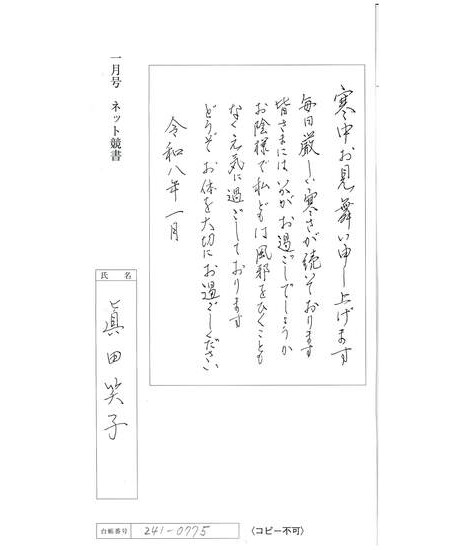 寒中お見舞い申し上げます
毎日厳しい寒さが続いております
皆さまにはいかがお過ごしでしょうか
お陰様で私どもは風邪をひくことも
なく元気に過ごしております
どうぞお体を大切にお過ごしください
令和八年一月
一月号 ネット競書
氏名
眞田笑子
台帳番号 241-0775
〈コピー不可〉